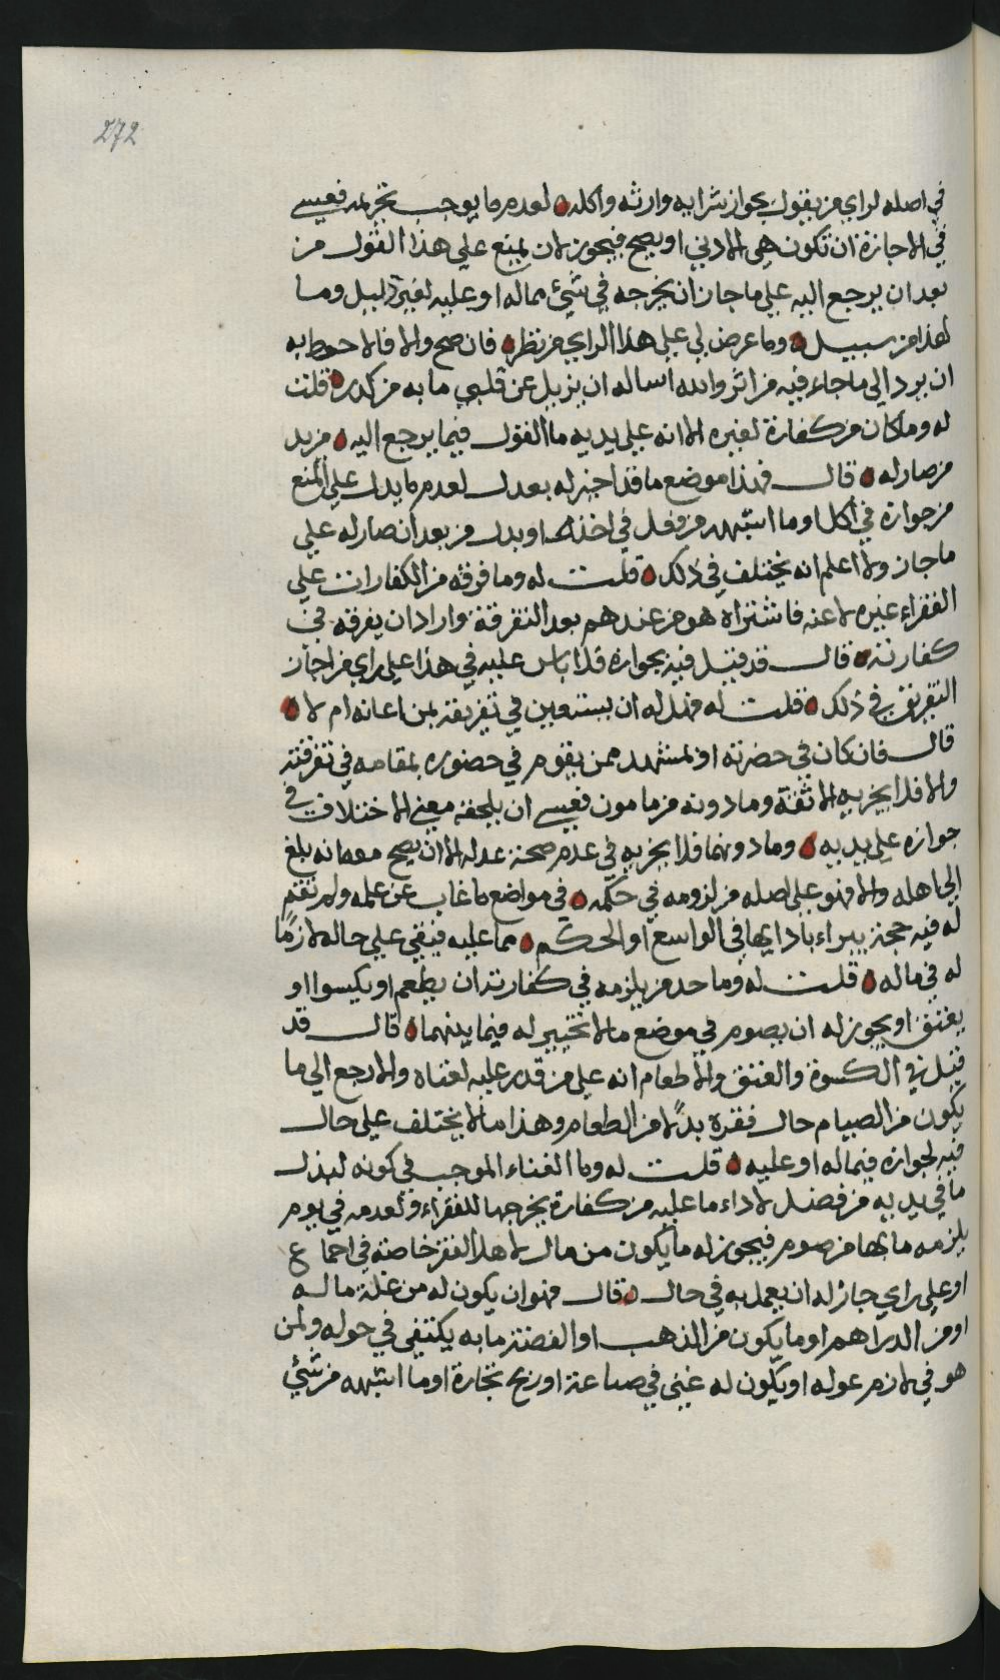 272
في اصله لراي من يقول بجواز شرايه وارثه واكله لعدم ما يوجب تحريمه فعيسى
في الاجازة ان تكون هي الادنى او يصح فيجوز لان يمنع على هذا القول من
بعد ان يرجع اليه على ما جاز ان يخرجه في شئ مما له او عليه لغير دليل وما
لهذا من سبيل وما عرض لي على هذا الراي من نظر فان صح والا فالاحوط به
ان يرد الى ما جاء فيه من اثر والله اساله ان يزيل عن قلبي ما به من كدر قلت
له وما كان من كفارة لغيره الا انه على يديه ما القول فيما يرجع اليه من يد
من صار له قال فهذا موضع ما قد اجيز له بعدل لعدم ما يدل على المنع
من جوازه في اكل او ما اشبهه من فعل في اخذ او بدل من بعد ان صار له على
ما جاز ولا اعلم انه يختلف في ذلك قلت له وما فرقه من الكفارات على
الفقراء غيره لا عنه فاشتراه هو من عندهم بعد التفرقة واراد ان يفرقه في
كفارته قال قد قيل فيه بجوازه فلا باس عليه في هذا على راي من اجاز
التفريق في ذلك قلت له فهل له ان يستعين في تفريقه بمن اعانه ام لا
قال فان كان في حضرته او بمشهد ممن يقوم في حضوره بمقامه في تفرقته
والا فلا يجزيه الا ثقة وما دونه من مامون فعيسى ان يلحقه معنى الاختلاف في
جوازه على يديه وما دونهما فلا يجزيه في عدم صحة عدله الا ان يصح معه انه بلغ
الى اهله والا فهو على اصله من لزومه في حكمه في مواضع ما غاب عن علمه ولم تقم
له فيه حجة يبراء بادايها في الواسع او الحكم مما عليه فيبقي على حاله لازمًا
له في ماله قلت له وما حد من يلزمه في كفارته ان يطعم او يكسوا او
يعتق او يجوز له ان يصوم في موضع ما لا تخيير له فيما بينهما قال قد
قيل في الكسوة والعتق والاطعام انه على من قدر عليه لغناه والا رجع الى ما
يكون من الصيام حال فقره بدلًا من الطعام وهذا ما لا يختلف على حال
فيه لجوازه فيما له او عليه قلت له وما الغناء الموجب في كونه لبذل
ما في يديه من فضل لاداء ما عليه من كفارة يخرجها للفقراء ولعدمه في يوم
يلزمه ما بها من صوم فيجوز له ما يكون من مال لاهل الفقر خاصة في اجماع
او على راي جاز له ان يعمل به في حال قال فهو ان يكون له من غلة ماله
او من الدراهم او ما يكون من الذهب او الفضة ما به يكتفي في حوله ولمن
هو في لازم عوله او يكون له غنى في صناعة او ربح تجارة او ما اشبهه من شئ